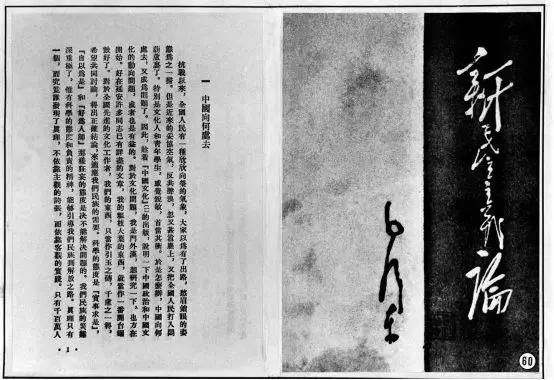 新民主主義論
毛澤東
一 中國向何處去
抗戰以來,全國人民有一種欣欣向榮的氣象,大家以爲有了出路,愁眉鎖眼的姿
態爲之一掃。但是近來的妥協空氣,反共聲浪,忽又甚囂塵上,又把全國人民打入悶
葫蘆裏了。特別是文化人和青年學生,感覺銳敏,首當其衝。於是怎麼辦,中國向何
處去,又成爲問題了。因此,趁着『中國文化』(一)的出版,說明一下中國政治和中國文
化的動向問題,或者也是有益的。對於文化問題,我是門外漢,想研究一下,也方在
開始。好在延安許多同志已有詳盡的文章,我的粗枝大葉的東西,就當作一番開台鑼
鼓好了。對於全國先進的文化工作者,我們的東西,只當作引玉之磚,千慮之一得,
希望共同討論,得出正確結論,來適應我們民族的需要。科學的態度是『實事求是』,
『自以爲是』和『好爲人師』那樣狂妄的態度是決不能解決問題的。我們民族的災難
深重極了,惟有科學的態度和負責的精神,能夠引導我們民族到解放之路。真理只有
一個,而究竟誰發現了真理,不依靠主觀的誇張,而依靠客觀的實踐。只有千百萬人
·1·
60